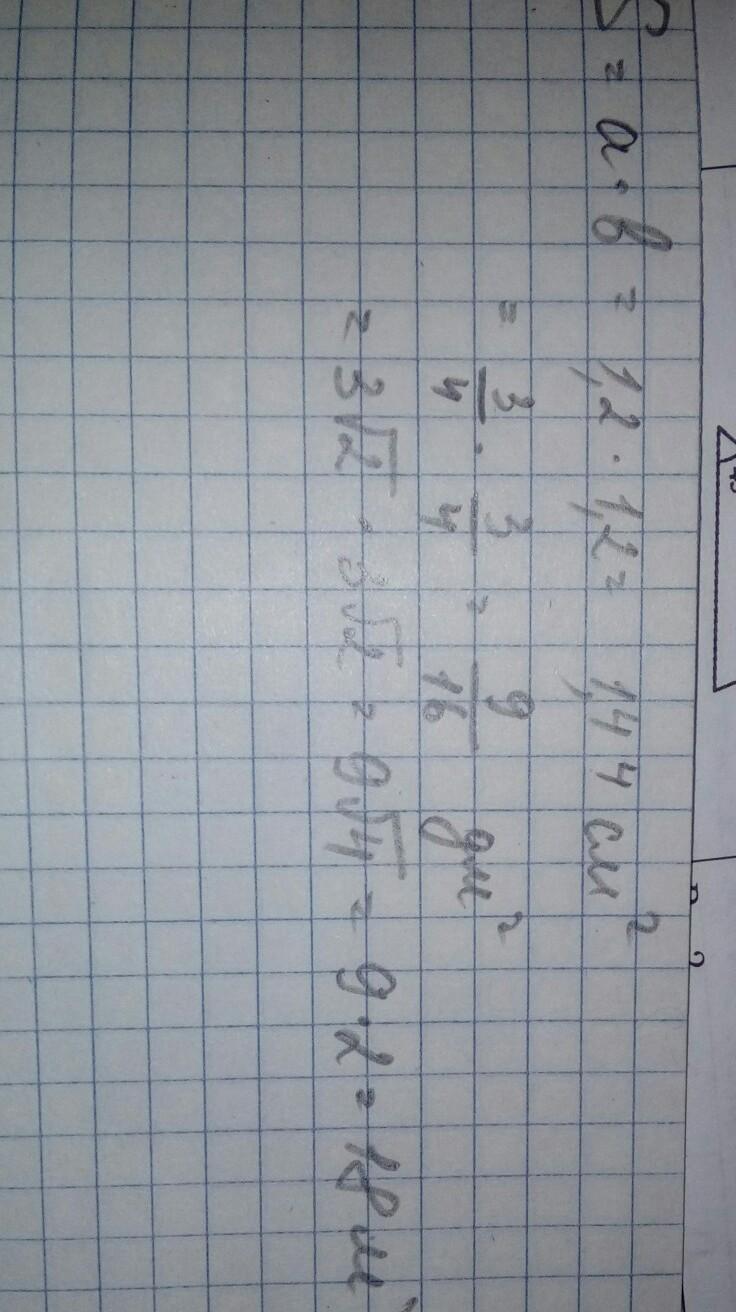 S = a · b = 1,2 · 1,2 = 1,44 см²
= 3/4 · 3/4 = 9/16 дм²
= 3√2 · 3√2 = 9√4 = 9·2 = 18 м²